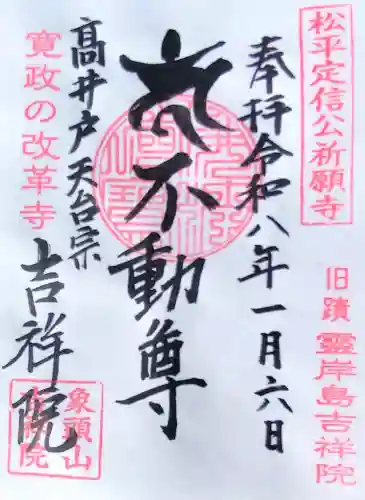 松平定信公祈願寺
旧蹟 靈岸島吉祥院
奉拝 令和八年一月六日
不動尊
高井戸 天台宗
吉祥院
寛政の改革寺
象頭山